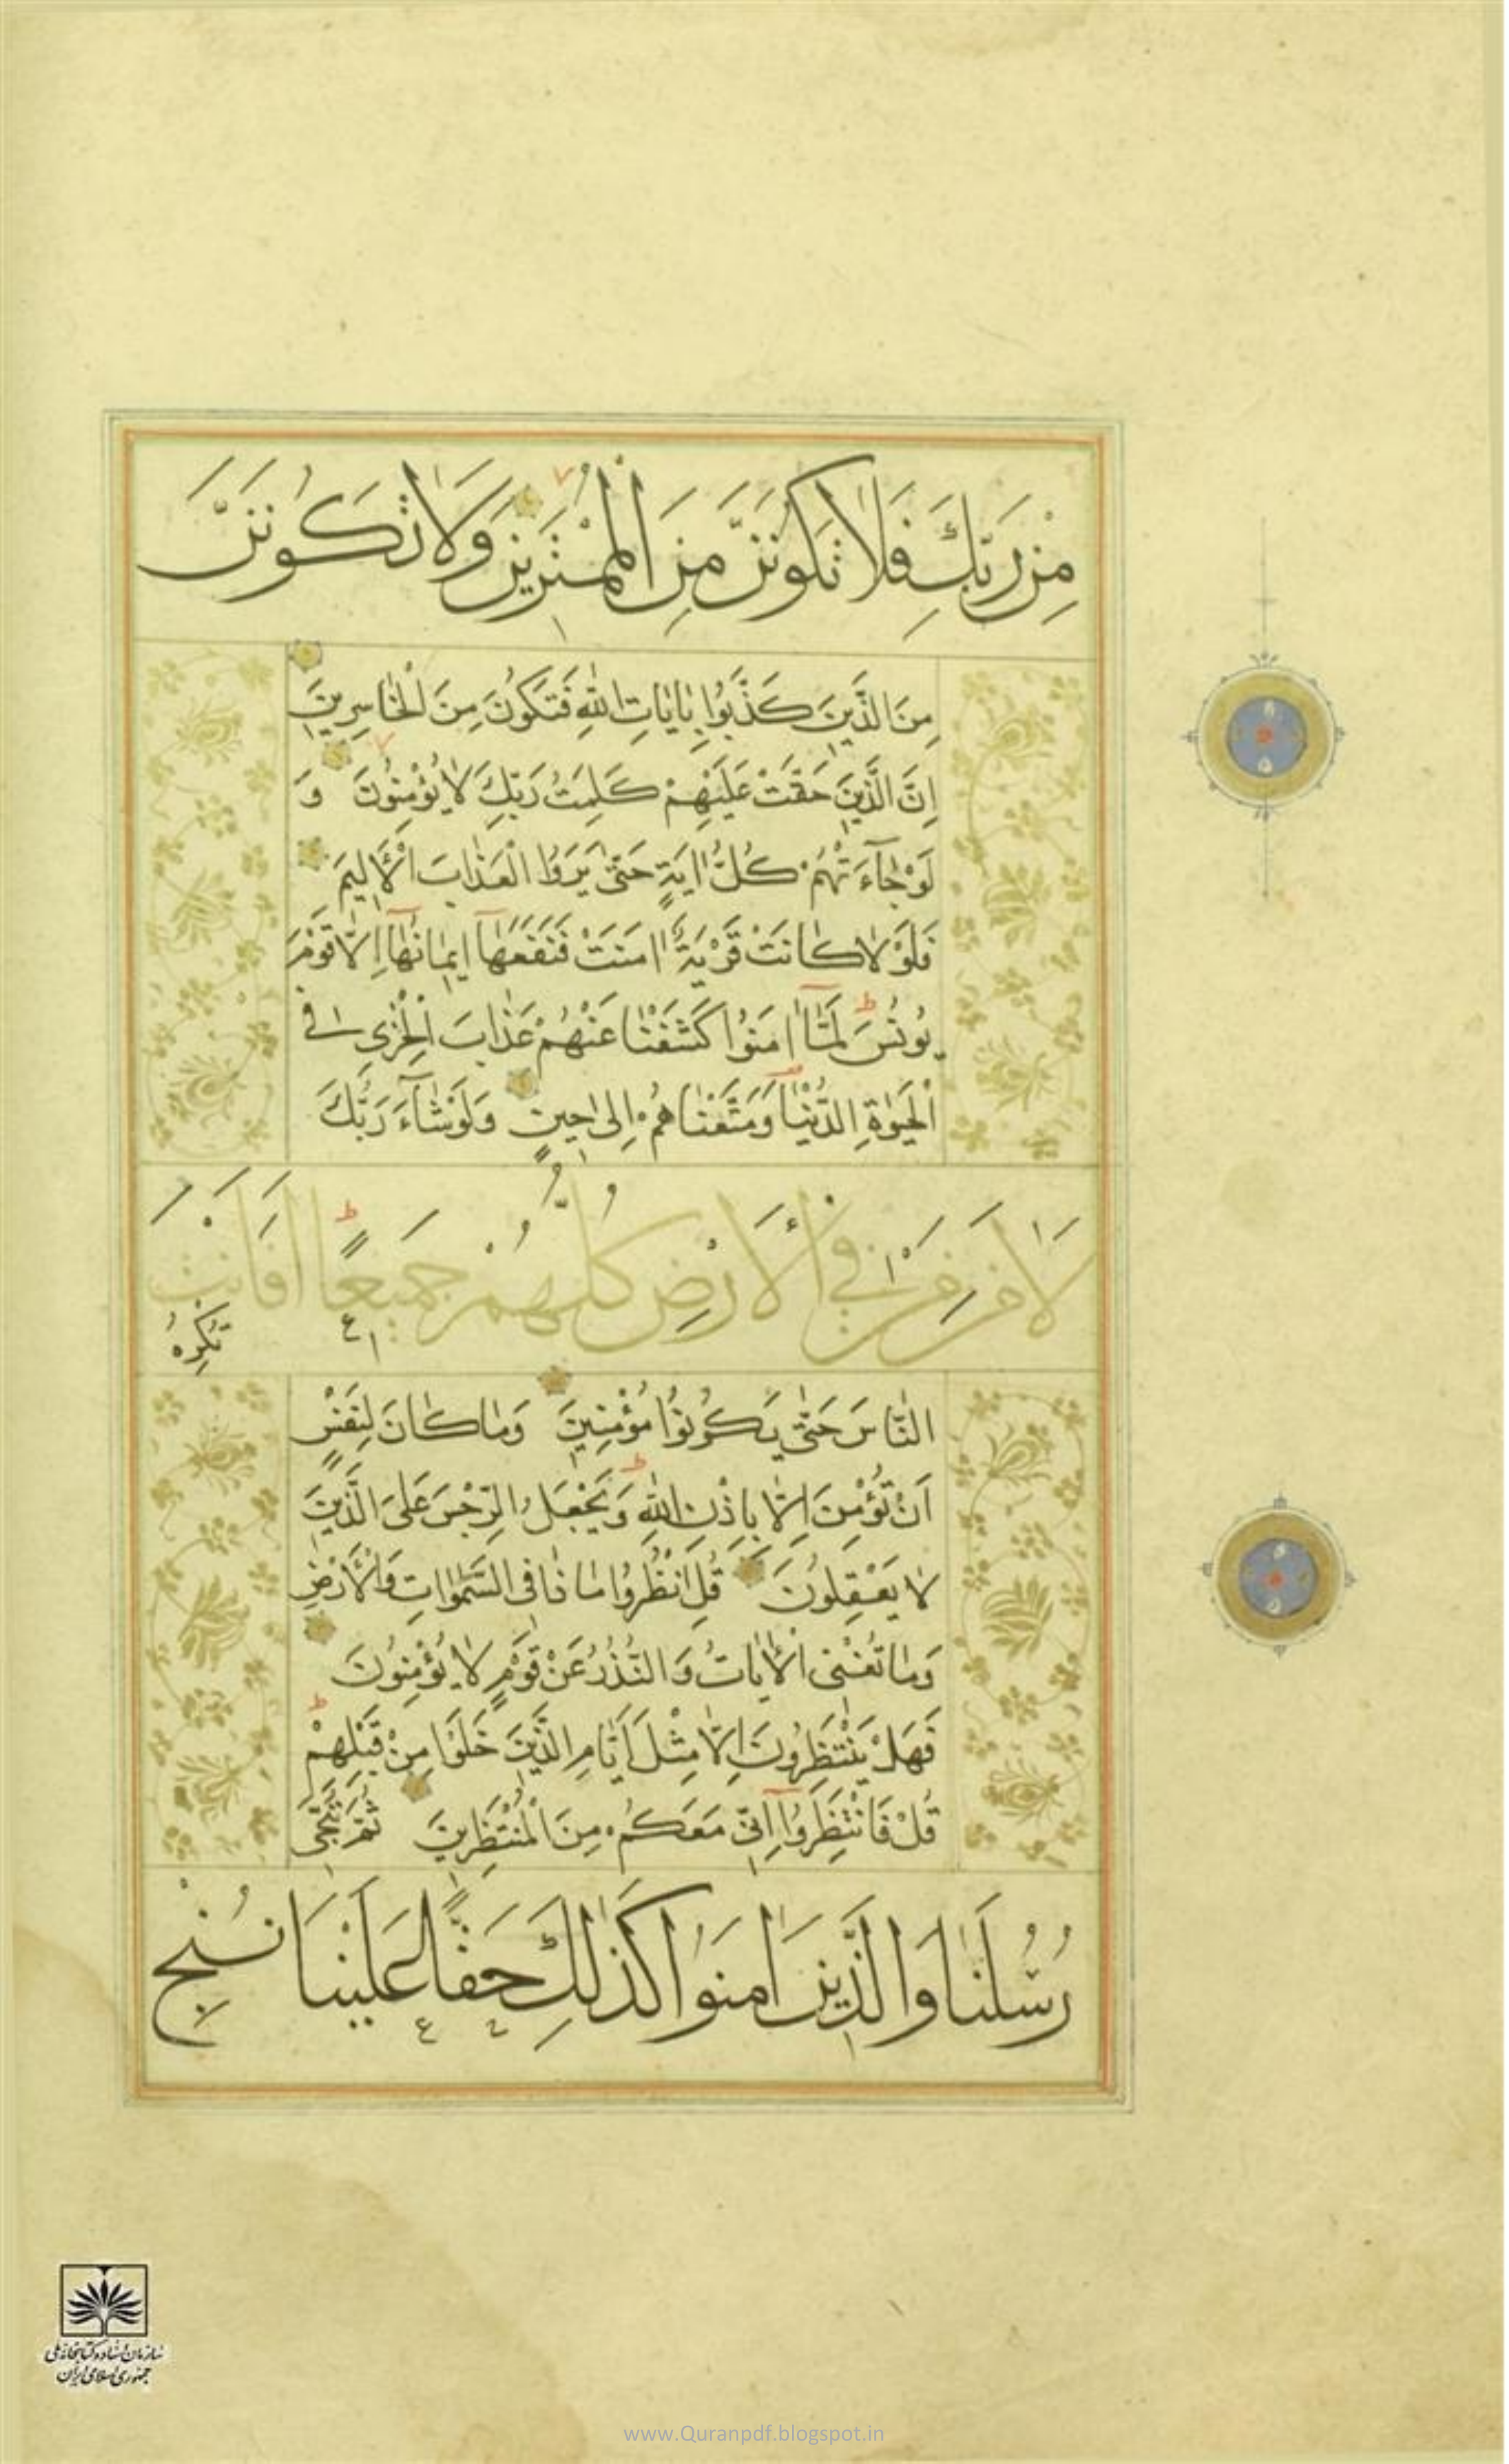 مِنْ رَبِّكَ فَلَا تَكُونَنَّ مِنَ الْمُمْتَرِينَ وَلَا تَكُونَنَّ
مِنَ الَّذِينَ كَذَّبُوا بِاٰيَاتِ اللّٰهِ فَتَكُونَ مِنَ الْخَاسِرِينَ
اِنَّ الَّذِينَ حَقَّتْ عَلَيْهِمْ كَلِمَتُ رَبِّكَ لَا يُؤْمِنُونَ وَ
لَوْ جَآءَتْهُمْ كُلُّ اٰيَةٍ حَتّٰى يَرَوُا الْعَذَابَ الْاَلِيمَ
فَلَوْلَا كَانَتْ قَرْيَةٌ اٰمَنَتْ فَنَفَعَهَآ اِيمَانُهَآ اِلَّا قَوْمَ
يُونُسَ لَمَّآ اٰمَنُوا كَشَفْنَا عَنْهُمْ عَذَابَ الْخِزْىِ فِى
الْحَيٰوةِ الدُّنْيَا وَمَتَّعْنَاهُمْ اِلٰى حِينٍ وَلَوْ شَآءَ رَبُّكَ
لَاٰمَنَ مَنْ فِى الْاَرْضِ كُلُّهُمْ جَمِيعًا اَفَاَنْتَ
تُكْرِهُ
النَّاسَ حَتّٰى يَكُونُوا مُؤْمِنِينَ وَمَا كَانَ لِنَفْسٍ
اَنْ تُؤْمِنَ اِلَّا بِاِذْنِ اللّٰهِ وَيَجْعَلُ الرِّجْسَ عَلَى الَّذِينَ
لَا يَعْقِلُونَ قُلِ انْظُرُوا مَاذَا فِى السَّمٰوَاتِ وَالْاَرْضِ
وَمَا تُغْنِى الْاٰيَاتُ وَالنُّذُرُ عَنْ قَوْمٍ لَا يُؤْمِنُونَ
فَهَلْ يَنْتَظِرُونَ اِلَّا مِثْلَ اَيَّامِ الَّذِينَ خَلَوْا مِنْ قَبْلِهِمْ
قُلْ فَانْتَظِرُوٓا اِنِّى مَعَكُمْ مِنَ الْمُنْتَظِرِينَ ثُمَّ نُنَجِّى
رُسُلَنَا وَالَّذِينَ اٰمَنُوا كَذٰلِكَ حَقًّا عَلَيْنَا نُنْجِ
سازمان اسناد و کتابخانه ملی
جمهوری اسلامی ایران
www.Quranpdf.blogspot.in